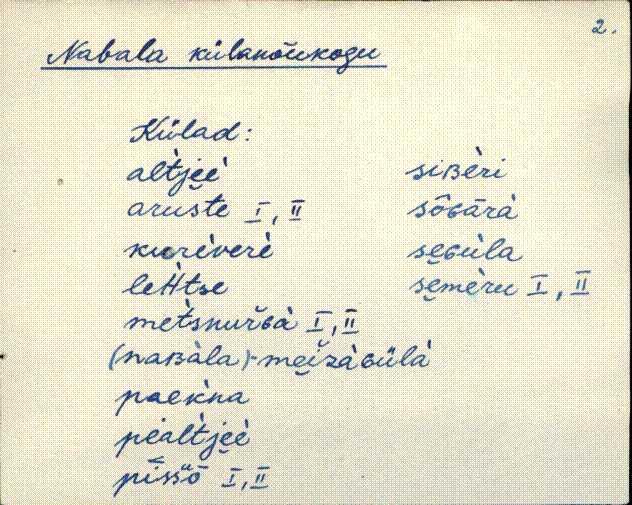 2.
Nabala külanõukogu
Külad:
al̀tjeè̬
aruste I, II
kurèverè
leHtse
met̀snuřɢà I, II
(naʙàla)-mei̬žàɢülà
paek̀na
pèal̀tjeè̬
pīssǖ I, II
siʙèri
sõɢārà
se̬ɢùla
se̬mèru I, II